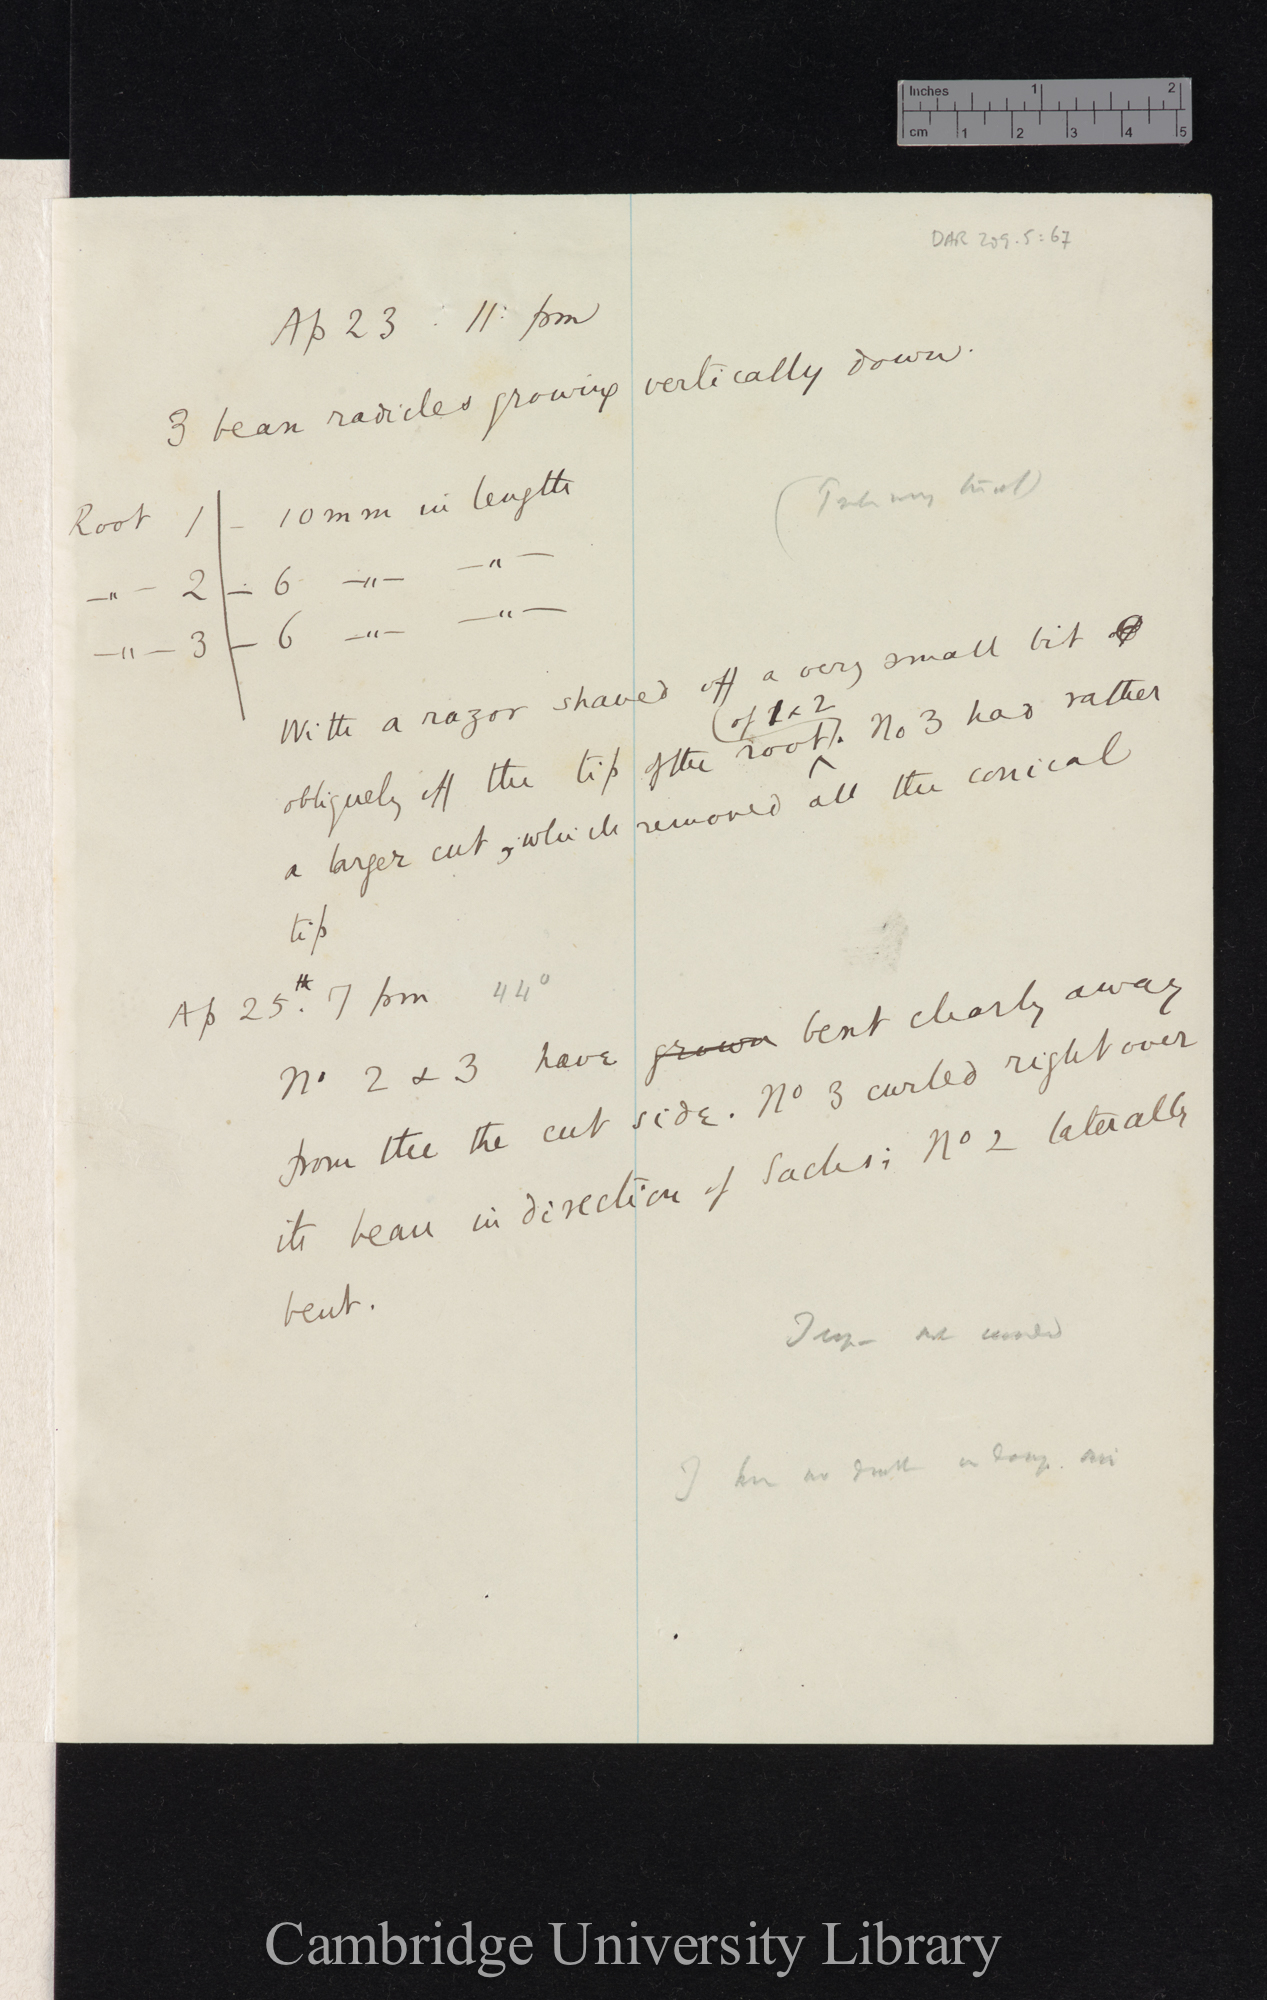 Inches 1 2
cm 1 2 3 4 5
DAR 209.5:67
Ap 23 : 11: pm
3 bean radicles growing vertically down.
Root 1 – 10 mm in length
–"– 2 – 6 –"– –"–
–"– 3 – 6 –"– –"–
With a razor shaved off a very small bit
(of 1 & 2
obliquely off the tip of the root). No 3 had rather
a larger cut, which removed all the conical
tip
Ap 25th. 7 pm 44°
No 2 & 3 have grown bent clearly away
from the the cut side. No 3 curled right over
its bean in direction of Sachs; No 2 laterally
bent.
Temp not
I have no doubt in damp air
Cambridge University Library